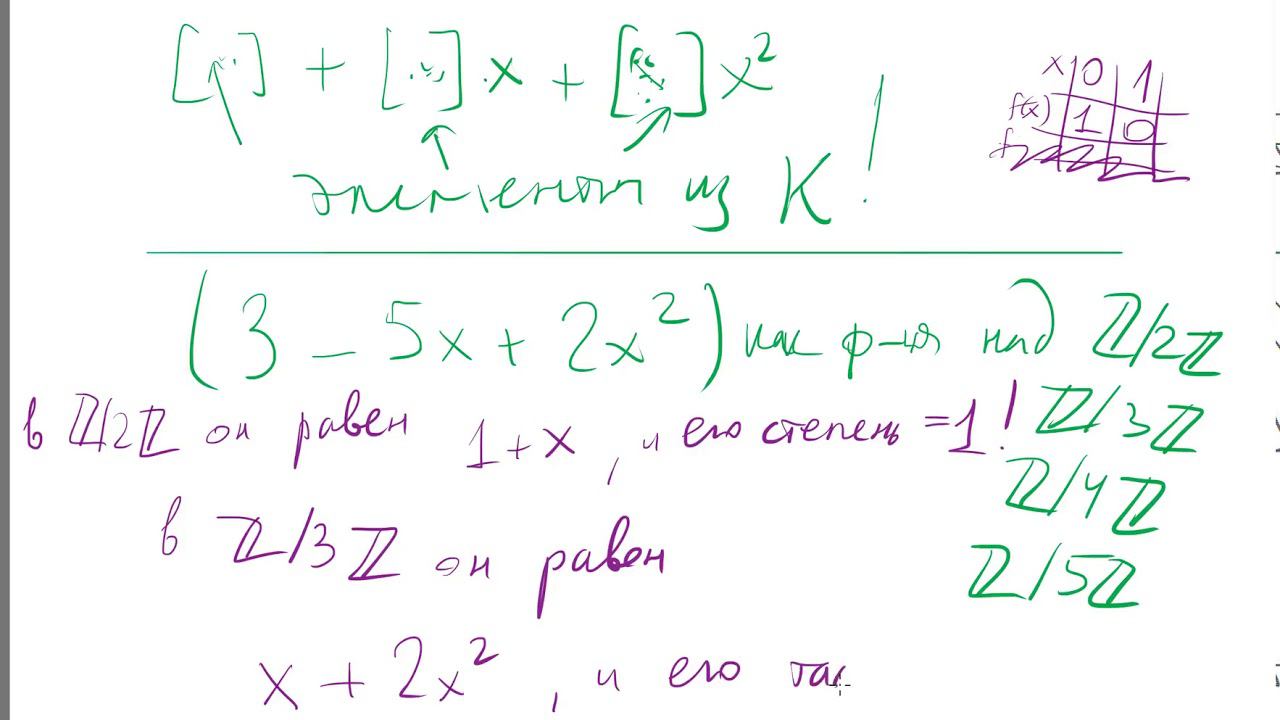 [...] + [...] x + [...] x²
x 0 1
f(x) 1 0
элементы из K !
(3 - 5x + 2x²) как ф-ия над ℤ/2ℤ
ℤ/3ℤ
ℤ/4ℤ
ℤ/5ℤ
в ℤ/2ℤ он равен 1+x, и его степень =1!
в ℤ/3ℤ он равен
x + 2x², и его таб